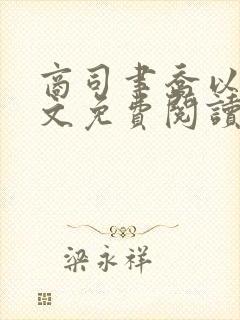 商司書喬以
文免費閱讀
梁永祥